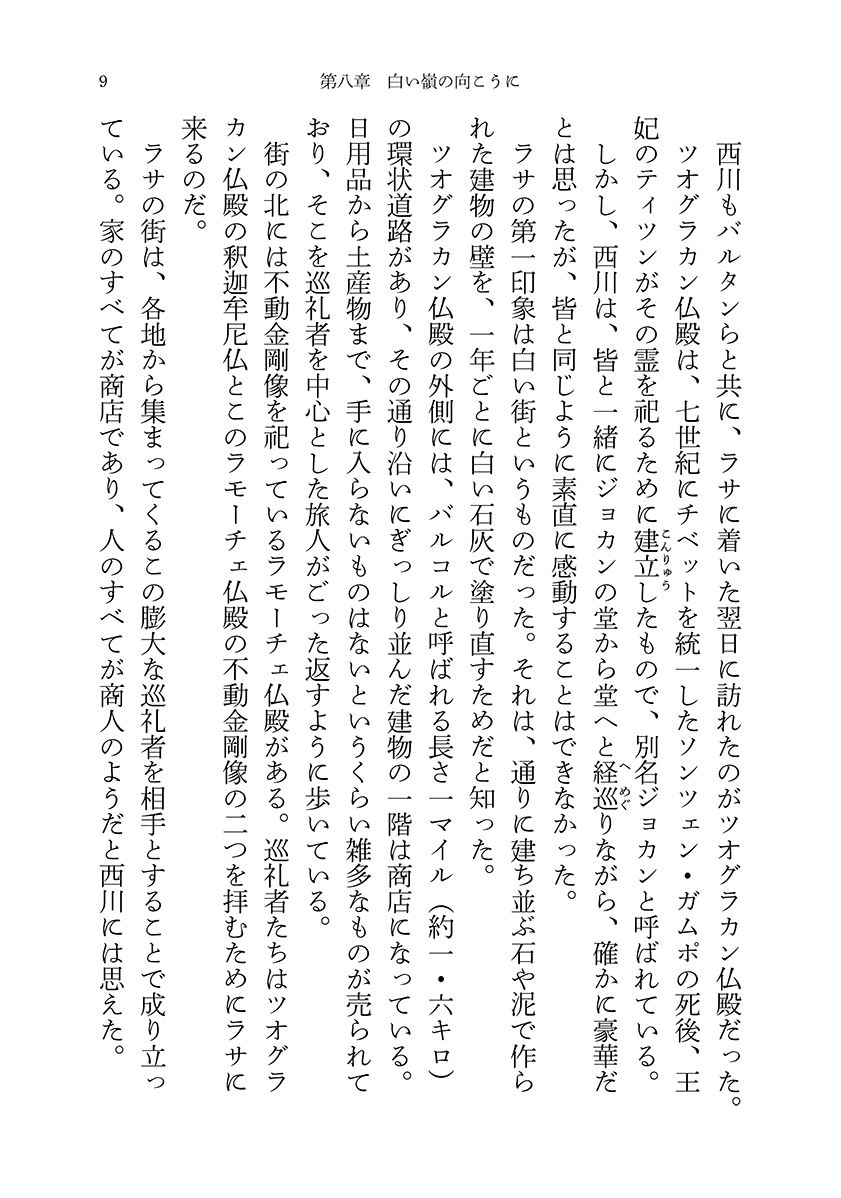 9
第八章　白い嶺の向こうに
西川もバルタンらと共に、ラサに着いた翌日に訪れたのがツオグラカン仏殿だった。
ツオグラカン仏殿は、七世紀にチベットを統一したソンツェン・ガムポの死後、王
妃のティツンがその霊を祀るために建立したもので、別名ジョカンと呼ばれている。
こんりゅう
しかし、西川は、皆と一緒にジョカンの堂から堂へと経巡りながら、確かに豪華だ
へめぐ
とは思ったが、皆と同じように素直に感動することはできなかった。
ラサの第一印象は白い街というものだった。それは、通りに建ち並ぶ石や泥で作ら
れた建物の壁を、一年ごとに白い石灰で塗り直すためだと知った。
ツオグラカン仏殿の外側には、バルコルと呼ばれる長さ一マイル（約一・六キロ）
の環状道路があり、その通り沿いにぎっしり並んだ建物の一階は商店になっている。
日用品から土産物まで、手に入らないものはないというくらい雑多なものが売られて
おり、そこを巡礼者を中心とした旅人がごった返すように歩いている。
街の北には不動金剛像を祀っているラモーチェ仏殿がある。巡礼者たちはツオグラ
カン仏殿の釈迦牟尼仏とこのラモーチェ仏殿の不動金剛像の二つを拝むためにラサに
来るのだ。
ラサの街は、各地から集まってくるこの膨大な巡礼者を相手とすることで成り立っ
ている。家のすべてが商店であり、人のすべてが商人のようだと西川には思えた。